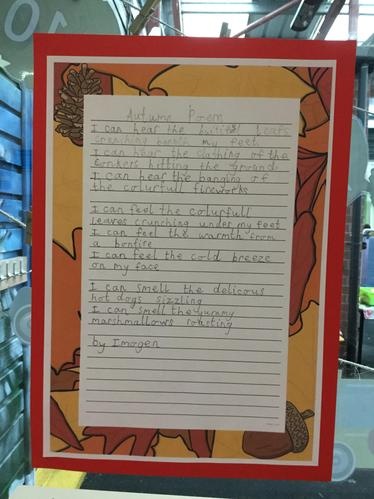 Autumn Poem
I can hear the leafs
crunching beneth my feet
I can hear the clashing of the
conkers hitting the ground
I can hear the banging of
the colurfull fireworks
I can feel the colurfull
leaves crunching under my feet
I can feel the warmth from
a bonfire
I can feel the cold breeze
on my face
I can smell the delicous
hot dogs sizzling
I can smell the yummy
marshmallows roasting
by Imogen